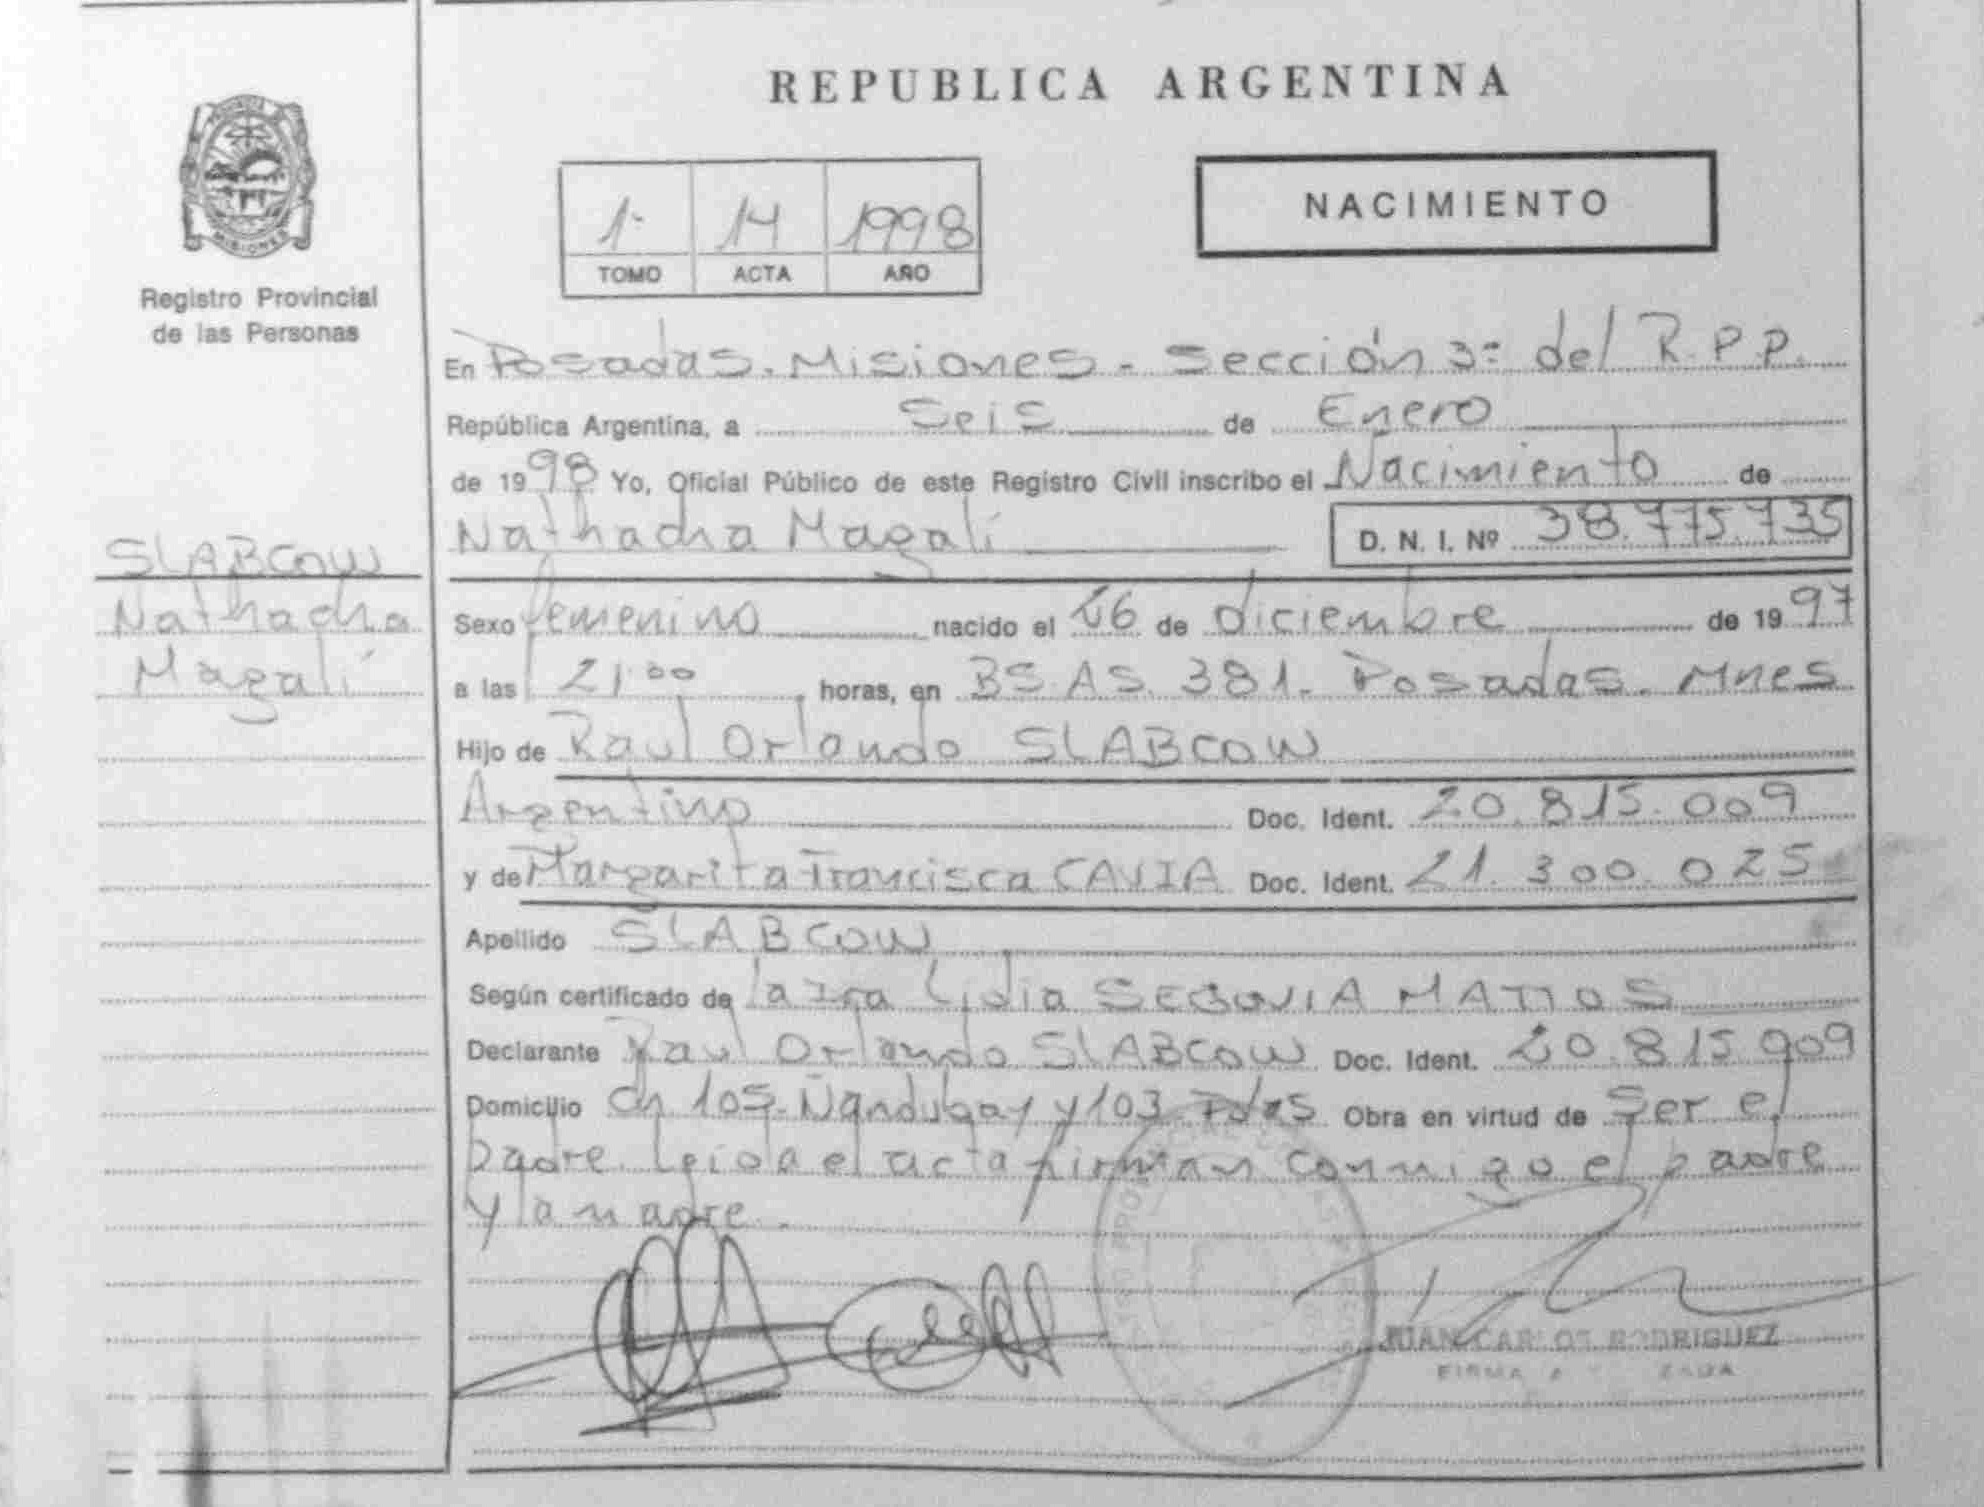 REPUBLICA ARGENTINA
PROVINCIA
MISIONES
Registro Provincial
de las Personas
NACIMIENTO
1- 14 1998
TOMO ACTA AÑO
En Posadas. Misiones - Sección 3º del R.P.P.
República Argentina, a Seis de Enero
de 1998 Yo, Oficial Público de este Registro Civil inscribo el Nacimiento de
Nathacha Magalí D. N. I. Nº 38.775.735
SLABCOW
Nathacha
Magalí
Sexo femenino nacido el 26 de diciembre de 1997
a las 21:00 horas, en BS.AS. 381. Posadas. Mnes
Hijo de Raul Orlando SLABCOW
Argentino Doc. Ident. 20.815.009
y de Margarita Francisca CAVIA Doc. Ident. 21.300.025
Apellido SLABCOW
Según certificado de la Lidia SEGOVIA MATTOS
Declarante Raul Orlando SLABCOW Doc. Ident. 20.815.909
Domicilio Ch 105-Ñandubay y 103 Pdas Obra en virtud de Ser el
padre. Leida el acta firman conmigo el padre
y la madre.
JUAN CARLOS RODRIGUEZ
FIRMA